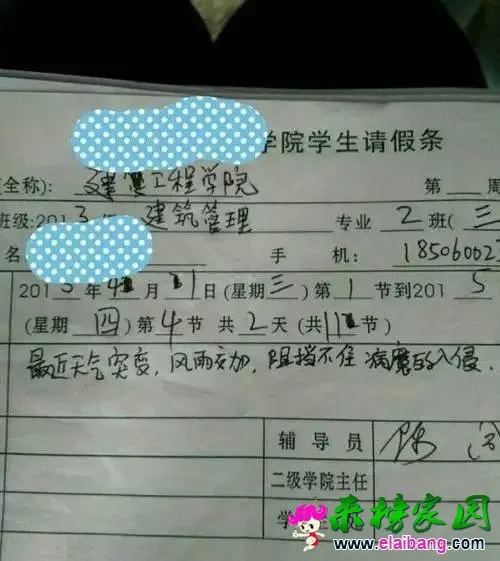 学院学生请假条
全称): 建工程学院 第 周
班级:2013年 建筑管理 专业 2 班(三
名 手 机: 18506002
2015年4月 1日 (星期三) 第 1 节到2015
(星期 四) 第 4 节 共 2 天 (共11节)
最近天气突变,风雨交加,阻挡不住病魔的入侵.
辅导员 陈
二级学院主任
学
来榜家园
www.elaibang.com